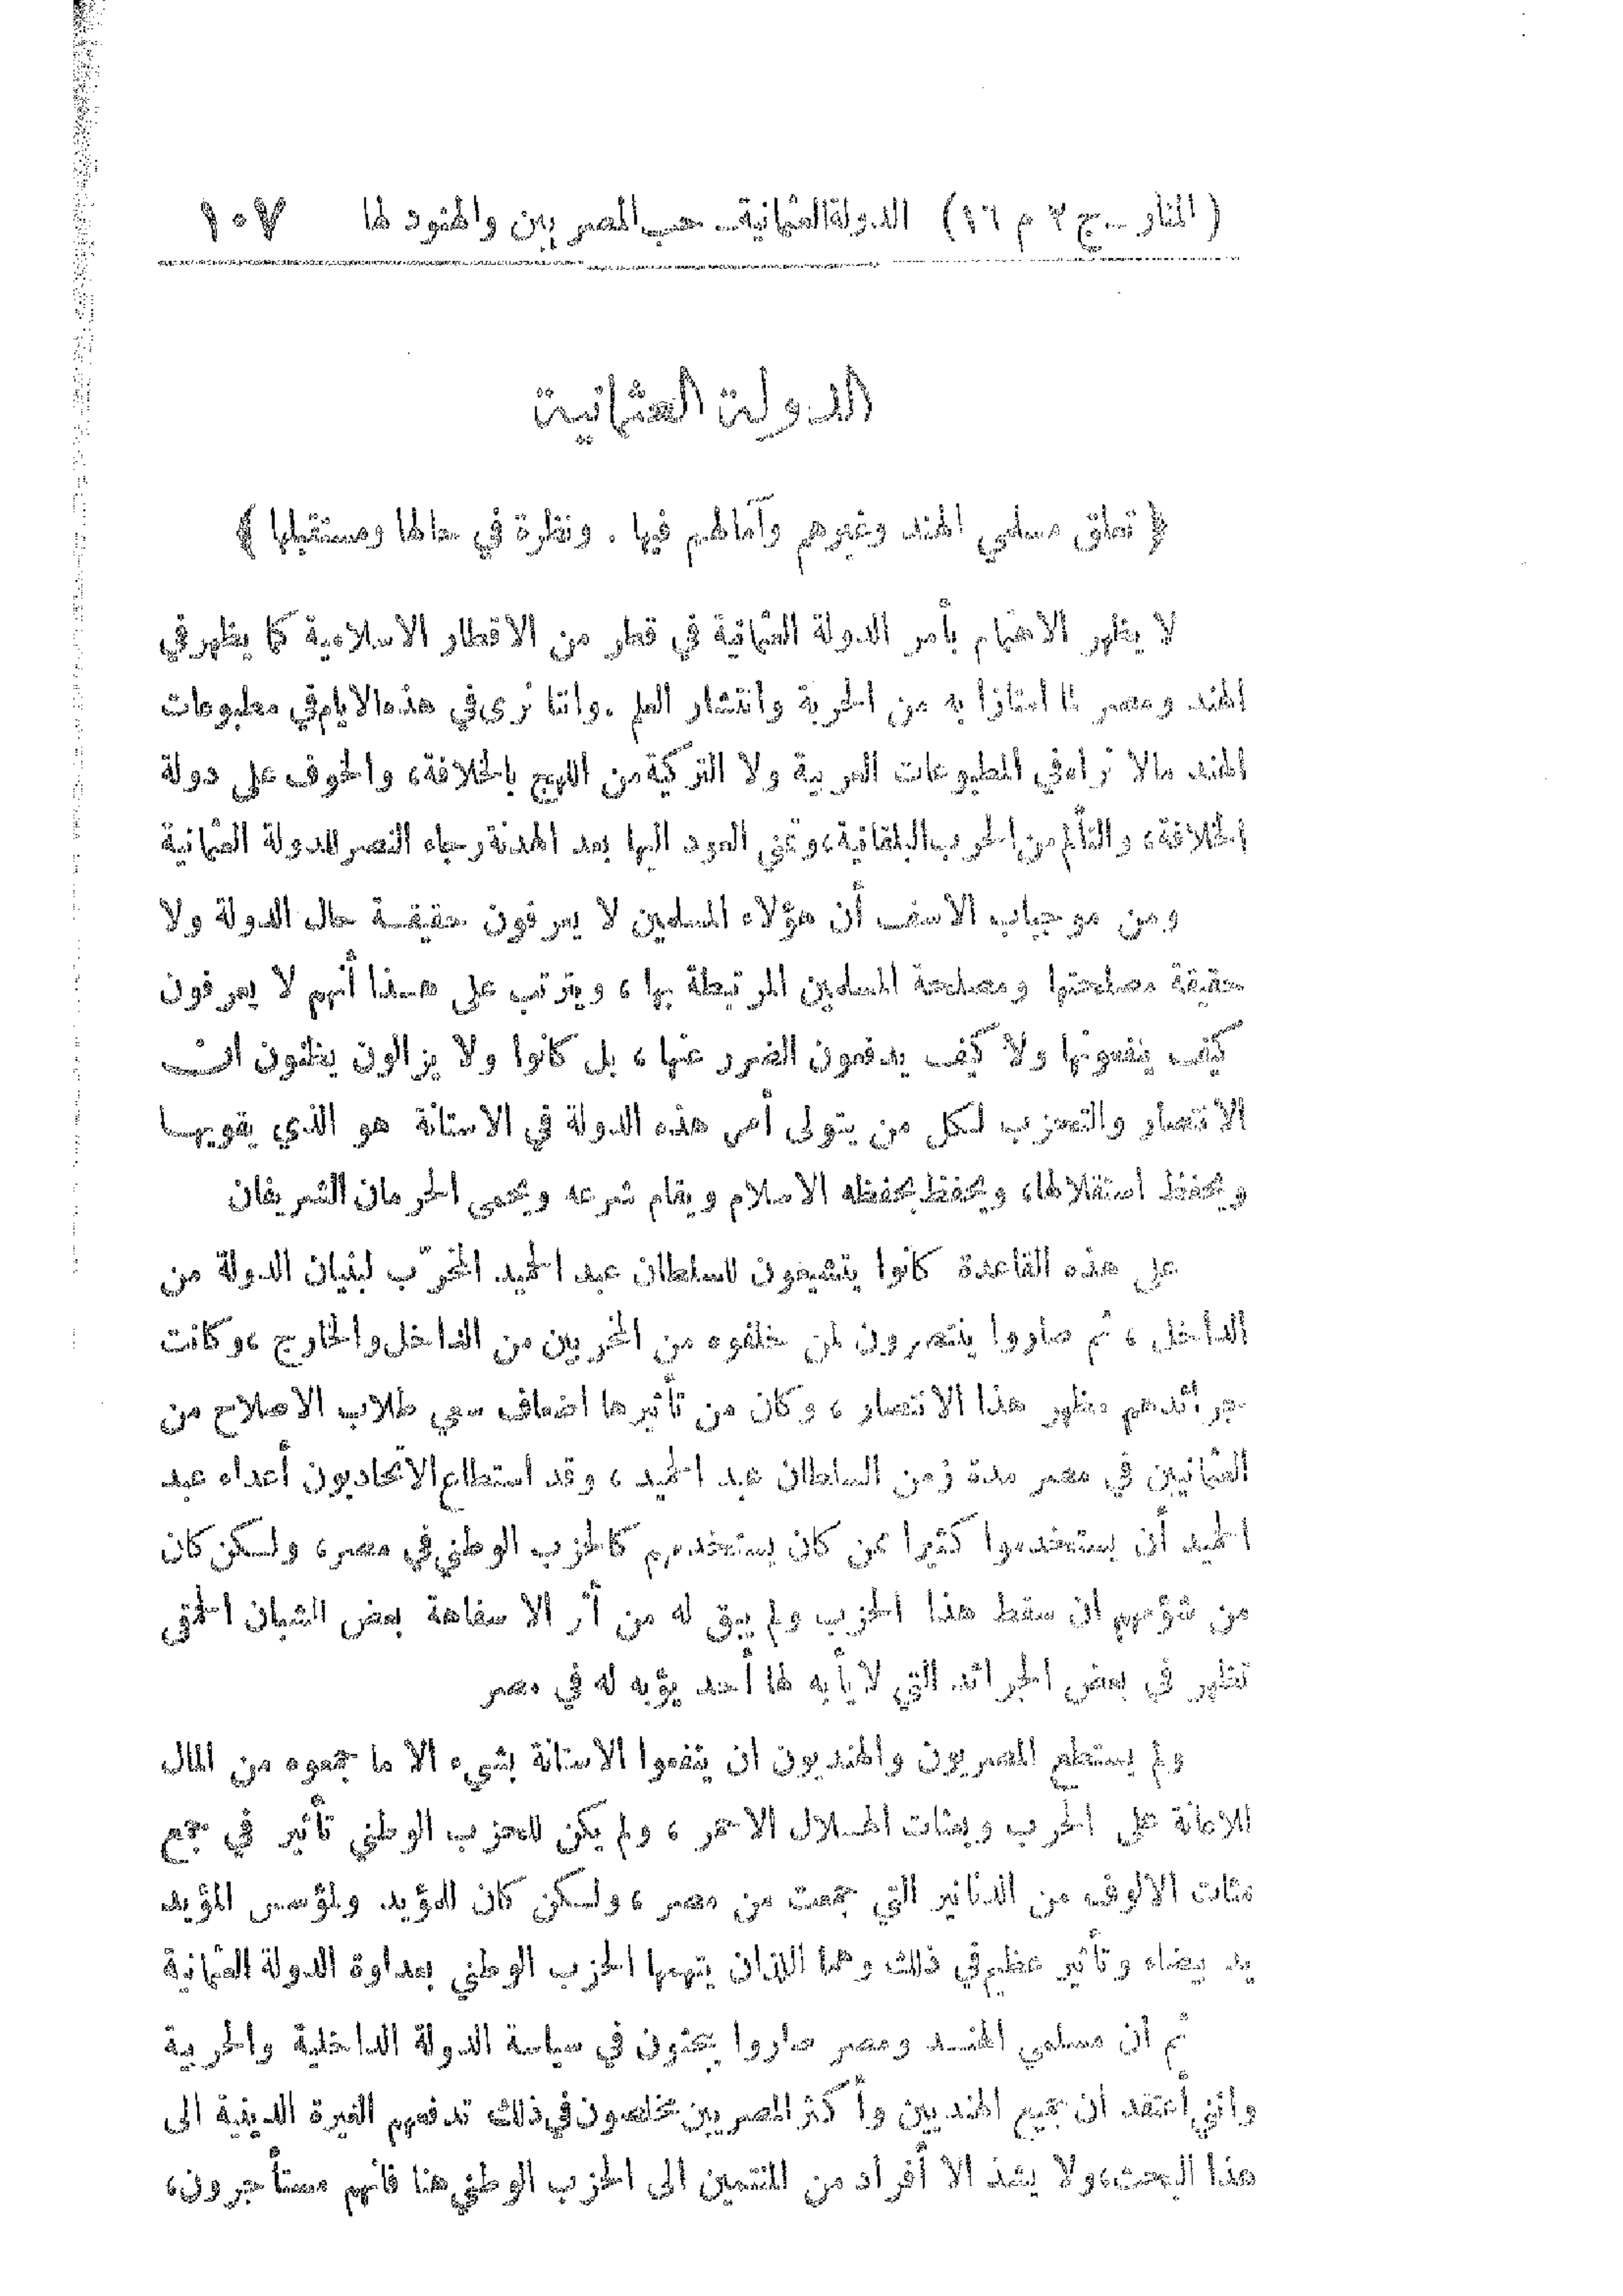 (المنار ـ ج ٢ م ١٦) الدولة العثمانية ـ حب المصريين والهنود لها ١٠٧
الدولة العثمانية
﴿ تعلق مسلمي الهند وغيرهم وآمالهم فيها . ونظرة في حالها ومستقبلها ﴾
لا يظهر الاهتمام بأمر الدولة العثمانية في قطر من الاقطار الاسلامية كما يظهر في
الهند ومصر لما امتازا به من الحرية وانتشار العلم . واننا نرى في هذه الايام في مطبوعات
الهند مالا نراه في المطبوعات العربية ولا التركية من اللهج بالخلافة، والخوف على دولة
الخلافة، والتألم من الحرب البلقانية، وتمني العود اليها بعد الهدنة رجاء النصر للدولة العثمانية
ومن موجبات الاسف أن هؤلاء المسلمين لا يعرفون حقيقة حال الدولة ولا
حقيقة مصلحتها ومصلحة المسلمين المرتبطة بها ، ويترتب على هذا أنهم لا يعرفون
كيف ينفعونها ولا كيف يدفعون الضرر عنها ، بل كانوا ولا يزالون يظنون ان
الانتصار والتحزب لكل من يتولى أمر هذه الدولة في الاستانة هو الذي يقويها
ويحفظ استقلالها، ويحفظ بحفظه الاسلام ويقام شرعه ويحمى الحرمان الشريفان
على هذه القاعدة كانوا يتشيعون للسلطان عبد الحميد المخرّب لبنيان الدولة من
الداخل ، ثم صاروا ينتصرون لمن خلفوه من المخربين من الداخل والخارج ، وكانت
جرائدهم مظهر هذا الانتصار ، وكان من تأثيرها اضعاف سعي طلاب الاصلاح من
العثمانيين في مصر مدة زمن السلطان عبد الحميد ، وقد استطاع الاتحاديون أعداء عبد
الحميد أن يستخدموا كثيرا ممن كان يستخدمهم كالحزب الوطني في مصر، ولكن كان
من شؤمهم ان سقط هذا الحزب ولم يبق له من أثر الا سفاهة بعض الشبان الحمقى
تظهر في بعض الجرائد التي لا يأبه لها أحد يؤبه له في مصر
ولم يستطع المصريون والهنديون ان ينفعوا الاستانة بشيء الا ما جمعوه من المال
للاعانة على الحرب وبعثات الهلال الاحمر ، ولم يكن للحزب الوطني تأثير في جمع
مئات الالوف من الدنانير التي جمعت من مصر ، ولكن كان للمؤيد ولمؤسس المؤيد
يد بيضاء وتأثير عظيم في ذلك وهما اللذان يتهمها الحزب الوطني بعداوة الدولة العثمانية
ثم ان مسلمي الهند ومصر صاروا يبحثون في سياسة الدولة الداخلية والحربية
وانني أعتقد ان جميع الهنديين وأكثر المصريين مخلصون في ذلك تدفعهم الغيرة الدينية الى
هذا البحث، ولا يشذ الا أفراد من المنتمين الى الحزب الوطني هنا فانهم مستأجرون،